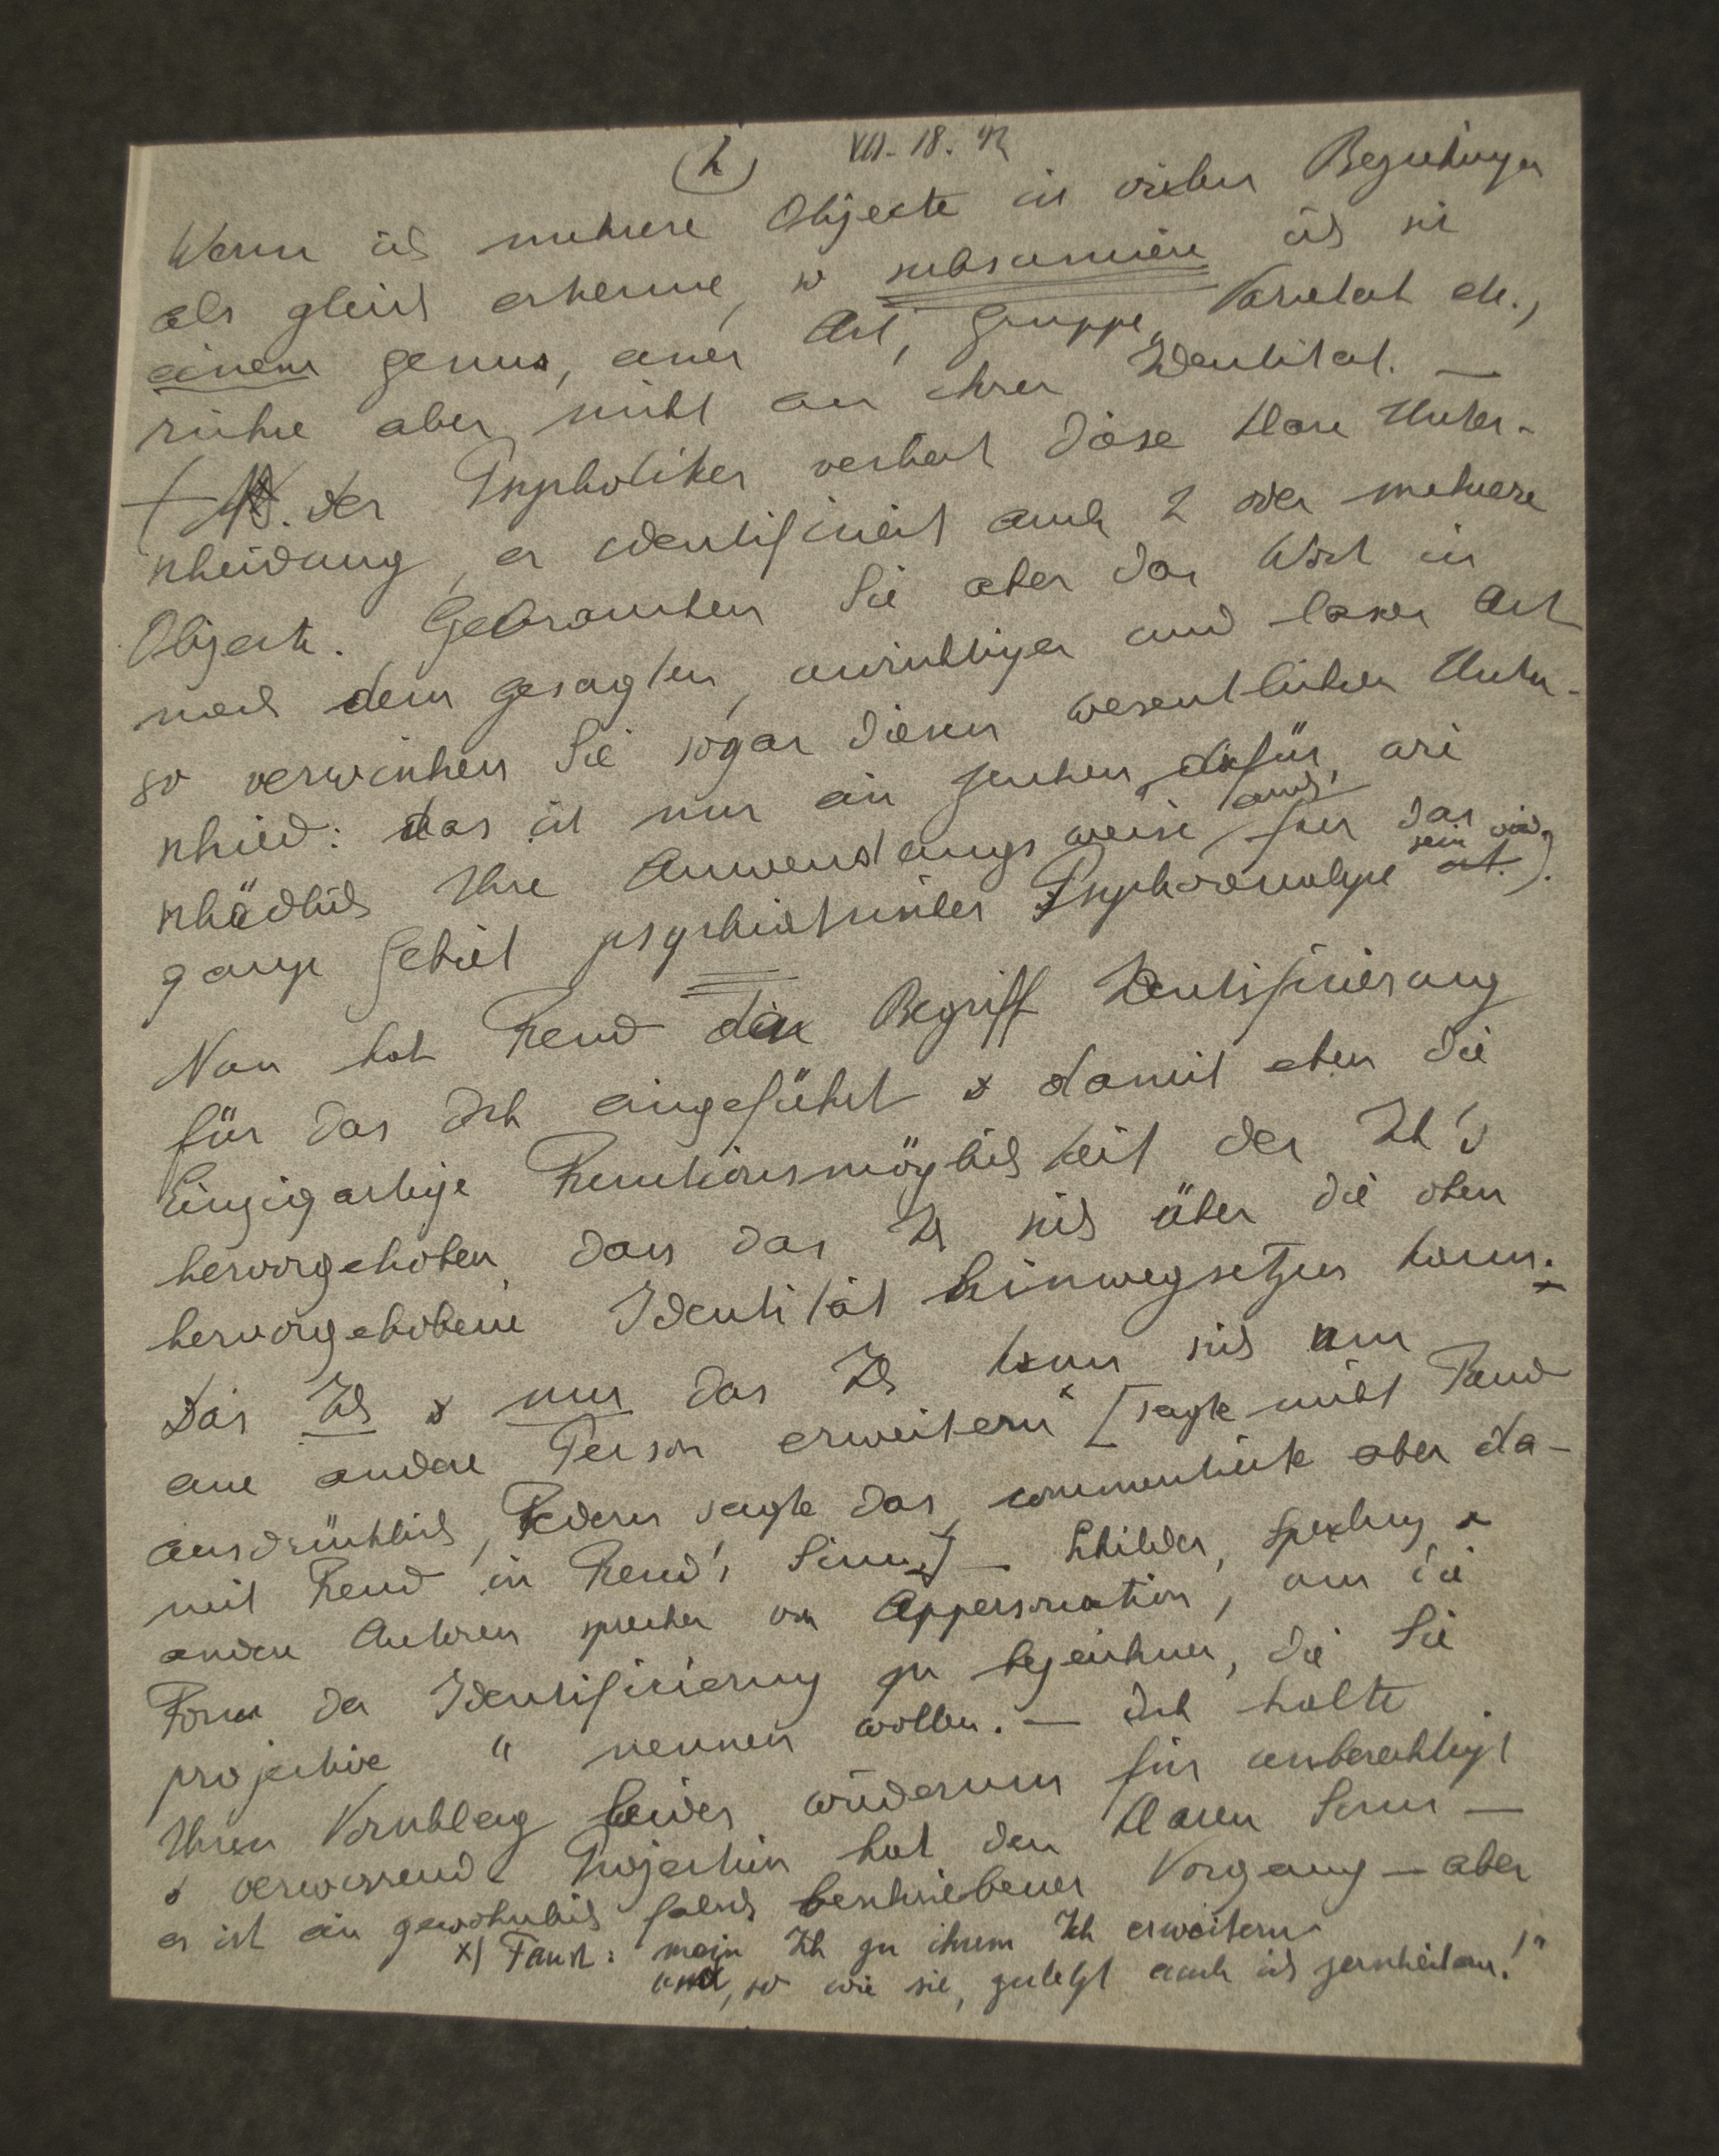 (2) VII. 18. 42
Wenn ich mehrere Objecte in vielen Beziehungen
als gleich erkenne, so subsumiere ich sie
einem genus, einer Art, Gruppe, Varietät etc.,
rühre aber nicht an ihrer Identität. —
(NB. der Psychotiker verliert diese klare Unter-
scheidung, er identificiert auch 2 oder mehrere
Objecte. Gebrauchen Sie aber das Wort in
nach dem gesagten, unrichtiger und laxer Art
so verwischen Sie sogar diesen wesentlichen Unter-
schied: das ist nur ein Zeichen dafür, wie
schädlich Ihre Anwendungsweise auch für das
ganze Gebiet psychiatrischer Psychoanalyse sein wird.).
Nun hat Freud den Begriff Identifizierung
für das Ich eingeführt & damit eben die
Einzigartige Funktionsmöglichkeit des Ich's
hervorgehoben, dass das Ich sich über die oben
hervorgehobene Identität hinwegsetzen kann.
Das Ich & nur das Ich kann sich um
eine andere Person erweitern x [sagte nicht Freud
ausdrücklich, Federn sagte das, commentierte aber da-
mit Freud in Freud's Sinne] — Schilder, Sperling &
andere Autoren sprechen von Appersonation, um die
Form der Identifizierung zu bezeichnen, die Sie
projective " nennen wollen. — Ich halte
Ihren Vorschlag leider wiederum für unberechtigt
& verwirrend. Projection hat den klaren Sinn —
es ist ein gewöhnlich falsch beschriebener Vorgang — aber
x) Faust: mein Ich zu ihrem Ich erweitern
und, so wie sie, zuletzt auch ich zerscheitern!"